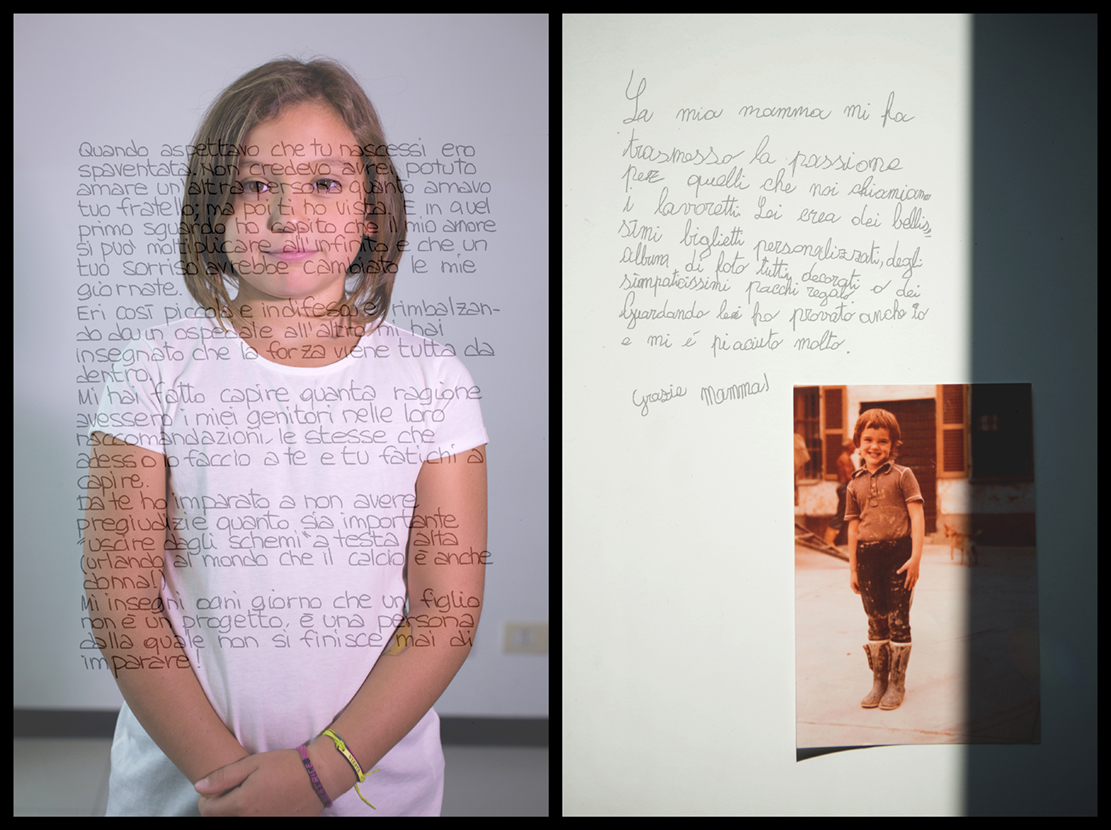 Quando aspettavo che tu nascessi ero
spaventata. Non credevo avrei potuto
amare un'altra persona quanto amavo
tuo fratello, ma poi ti ho vista. E in quel
primo sguardo ho capito che il mio amore
si può moltiplicare all'infinito e che un
tuo sorriso avrebbe cambiato le mie
giornate.
Eri così piccola e indifesa e, rimbalzan-
do da un ospedale all'altro, mi hai
insegnato che la forza viene tutta da
dentro.
Mi hai fatto capire quanta ragione
avessero i miei genitori nelle loro
raccomandazioni, le stesse che
adesso io faccio a te e tu fatichi a
capire.
Da te ho imparato a non avere
pregiudizi e quanto sia importante
"uscire dagli schemi" a testa alta
(urlando al mondo che il calcio è anche
donna!)
Mi insegni ogni giorno che un figlio
non è un progetto, è una persona
dalla quale non si finisce mai di
imparare!
La mia mamma mi ha
trasmesso la passione
per quelli che noi chiamiamo
i lavoretti. Lei crea dei bellis
simi biglietti personalizzati, degli
album di foto tutti decorati o dei
simpaticissimi pacchi regalo
Guardando lei ho provato anche io
e mi é piaciuto molto.
Grazie Mamma!